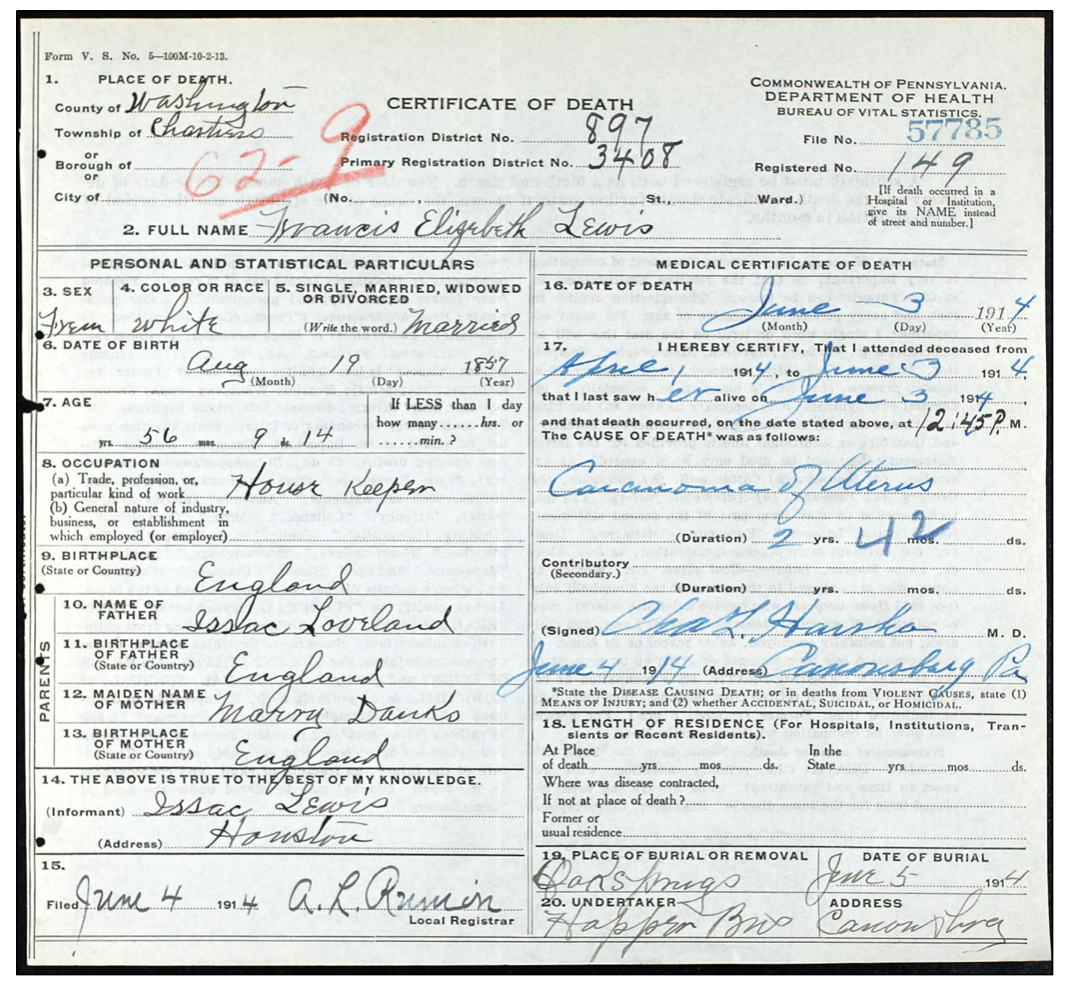 Form V. S. No. 5—100M-10-2-13.
1. PLACE OF DEATH.
County of Washington
Township of Chartiers
or
Borough of
or
City of
62-9
CERTIFICATE OF DEATH
Registration District No. 897
Primary Registration District No. 3408
(No. , St., Ward.)
COMMONWEALTH OF PENNSYLVANIA.
DEPARTMENT OF HEALTH
BUREAU OF VITAL STATISTICS.
File No. 57785
Registered No. 149
[If death occurred in a
Hospital or Institution,
give its NAME instead
of street and number.]
2. FULL NAME Francis Elizebeth Lewis
PERSONAL AND STATISTICAL PARTICULARS
3. SEX
Fem
4. COLOR OR RACE
White
5. SINGLE, MARRIED, WIDOWED
OR DIVORCED
(Write the word.) Married
6. DATE OF BIRTH
Aug 19 1857
(Month) (Day) (Year)
7. AGE
yrs. 56 mos. 9 ds. 14
If LESS than 1 day
how many hrs. or
min.?
8. OCCUPATION
(a) Trade, profession, or,
particular kind of work House Keeper
(b) General nature of industry,
business, or establishment in
which employed (or employer)
9. BIRTHPLACE
(State or Country)
England
PARENTS
10. NAME OF
FATHER
Issac Loveland
11. BIRTHPLACE
OF FATHER
(State or Country)
England
12. MAIDEN NAME
OF MOTHER
Marry Danks
13. BIRTHPLACE
OF MOTHER
(State or Country)
England
14. THE ABOVE IS TRUE TO THE BEST OF MY KNOWLEDGE.
(Informant) Issac Lewis
(Address) Houston
15.
Filed June 4 1914 A. L.
Local Registrar
MEDICAL CERTIFICATE OF DEATH
16. DATE OF DEATH
June 3 1914
(Month) (Day) (Year)
17. I HEREBY CERTIFY, That I attended deceased from
April 1 1914, to June 3 1914,
that I last saw her alive on June 3 1914
and that death occurred, on the date stated above, at 12:45 P. M.
The CAUSE OF DEATH* was as follows:
Carcinoma of Uterus
(Duration) 2 yrs. mos. ds.
42
Contributory
(Secondary.)
(Duration) yrs. mos. ds.
(Signed) Chas L. Harsha M. D.
June 4 1914 (Address) Canonsburg Pa
*State the DISEASE CAUSING DEATH; or in deaths from VIOLENT CAUSES, state (1)
MEANS OF INJURY; and (2) whether ACCIDENTAL, SUICIDAL, or HOMICIDAL.
18. LENGTH OF RESIDENCE (For Hospitals, Institutions, Tran-
sients or Recent Residents).
At Place In the
of death yrs mos. ds. State yrs mos ds.
Where was disease contracted,
If not at place of death?
Former or
usual residence
19. PLACE OF BURIAL OR REMOVAL
Oak Springs
DATE OF BURIAL
June 5 1914
20. UNDERTAKER
Hopper Bros
ADDRESS
Canonsburg